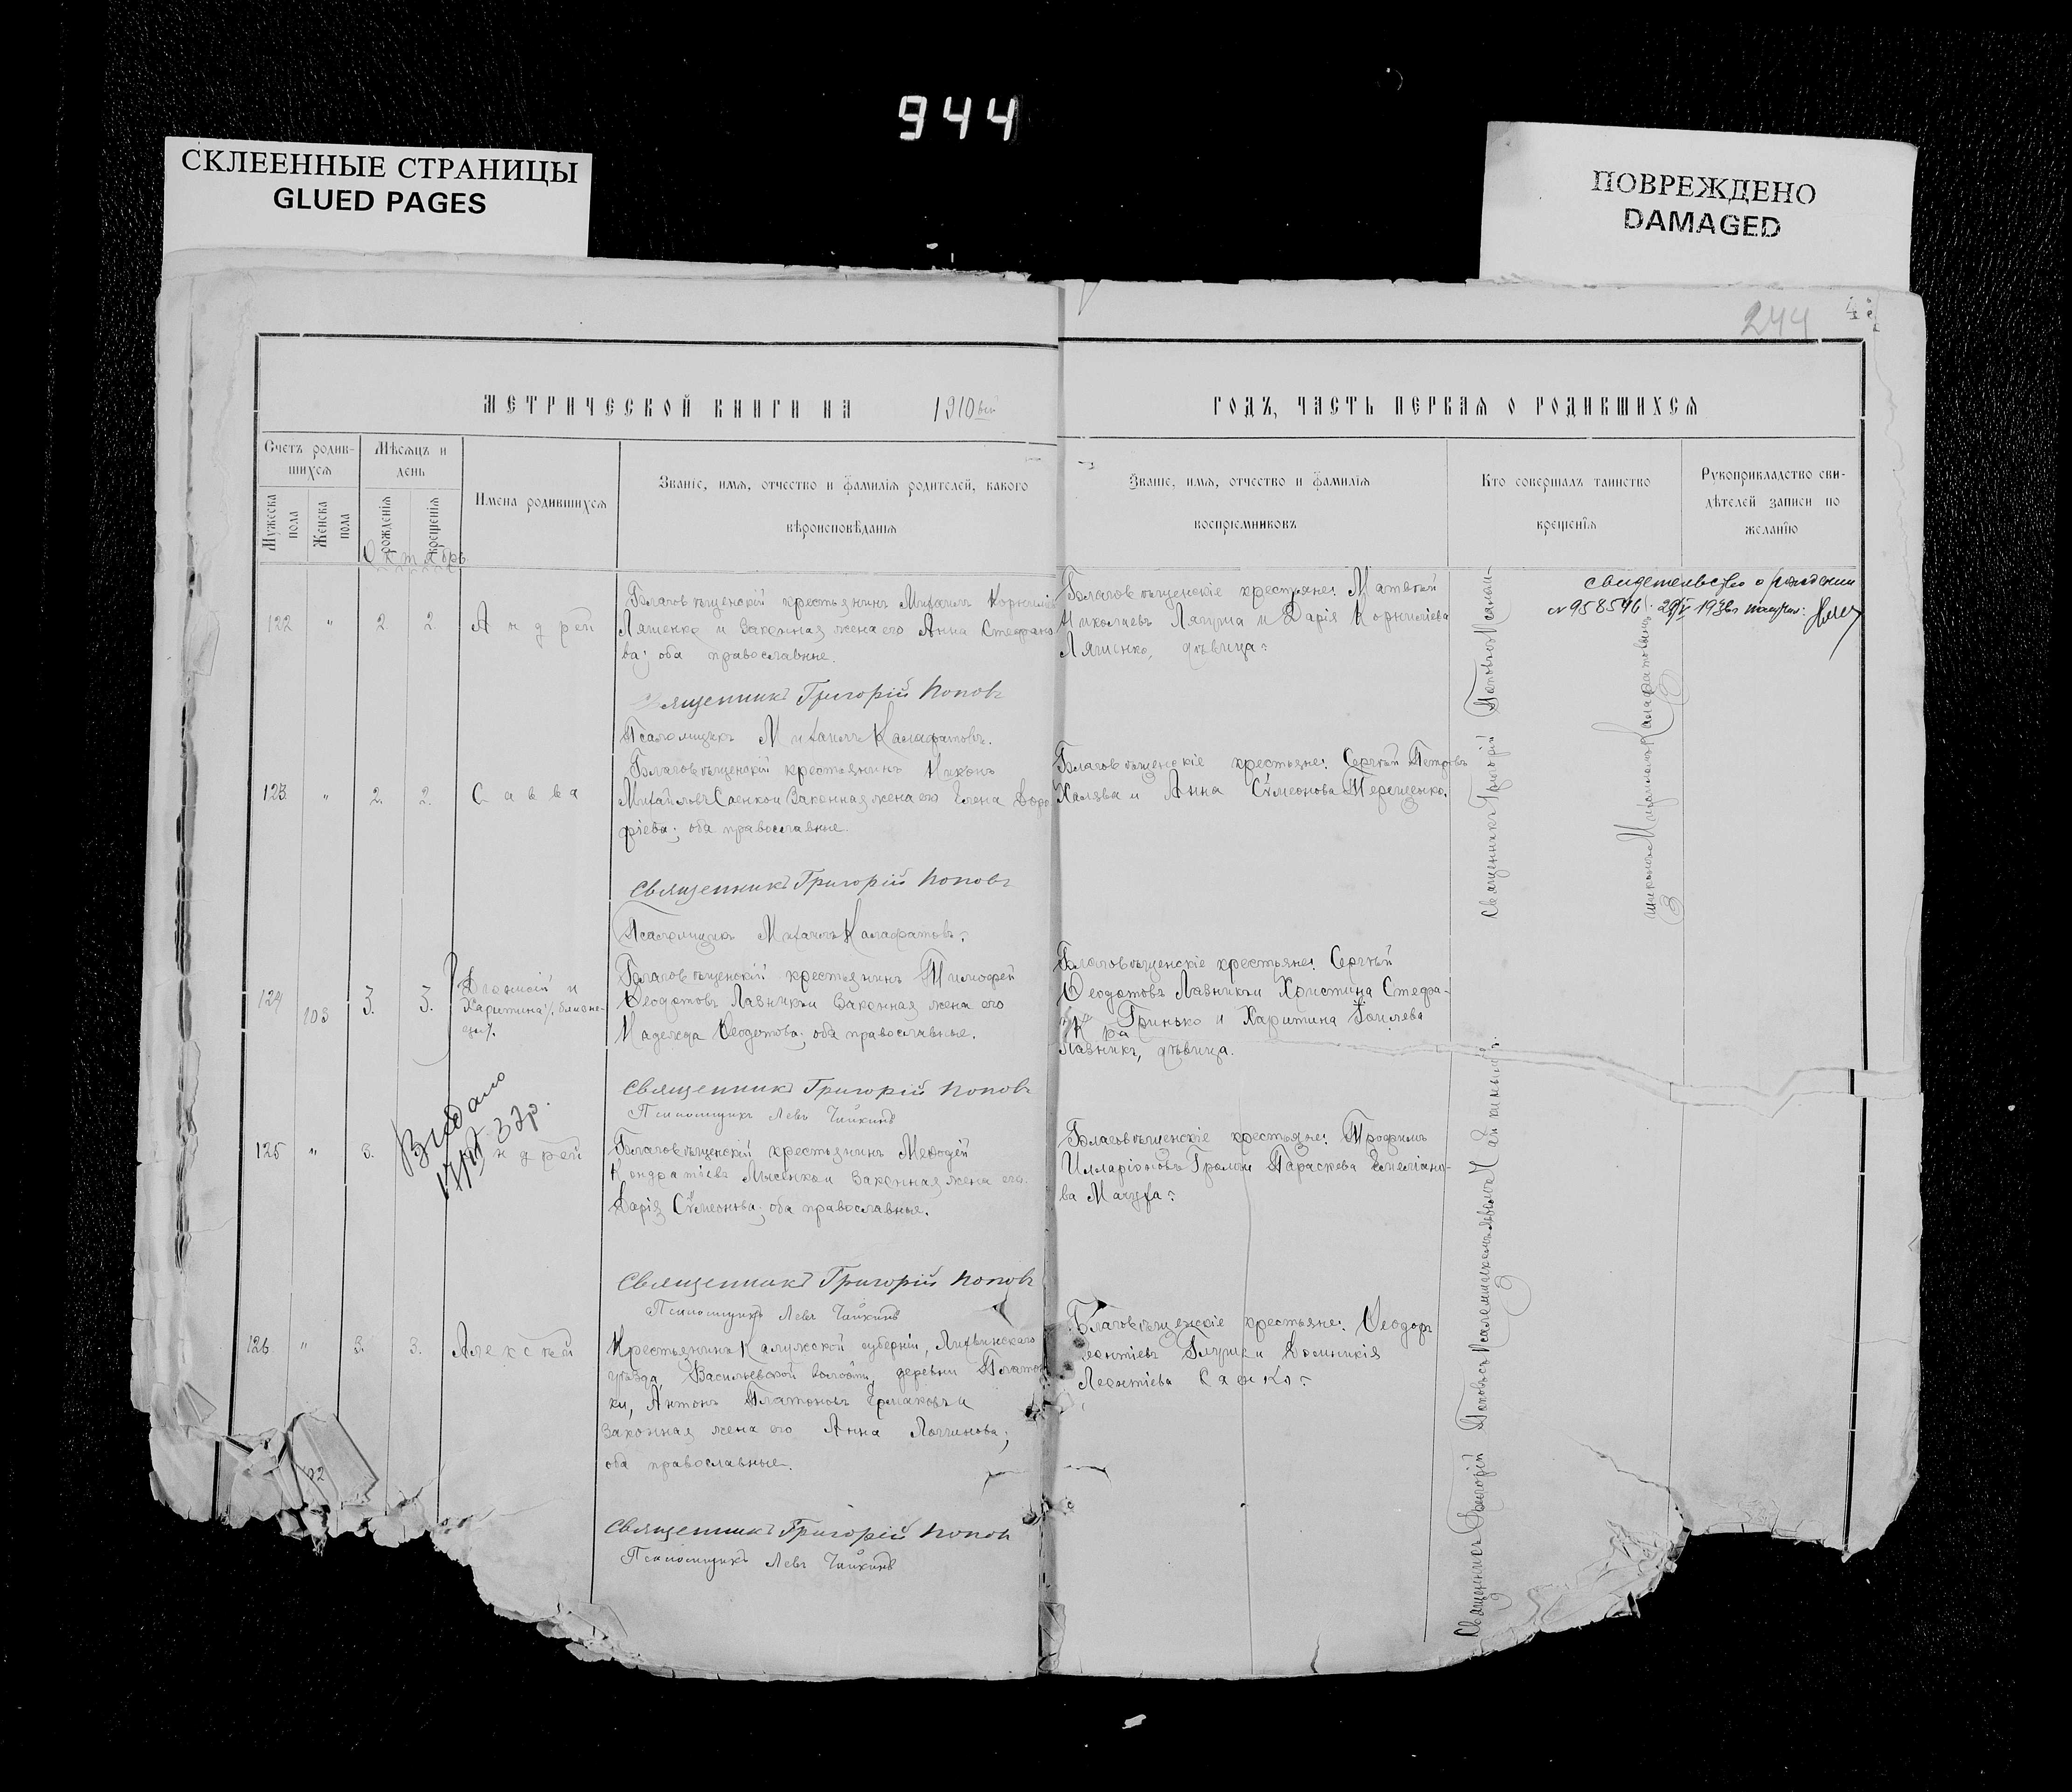 944
СКЛЕЕННЫЕ СТРАНИЦЫ
GLUED PAGES
ПОВРЕЖДЕНО
DAMAGED
244
МЕТРИЧЕСКОЙ КНИГИ НА 1910 ый
ГОДЪ, ЧАСТЬ ПЕРВАЯ О РОДИВШИХСЯ
Счетъ родив-
шихся
Мѣсяцъ и
день
Мужеска
пола
Женска
пола
рожденія
крещенія
Имена родившихся
Званіе, имя, отчество и фамилія родителей, какого
вѣроисповѣданія
Званіе, имя, отчество и фамилія
воспріемниковъ
Кто совершалъ таинство
крещенія
Рукоприкладство сви-
дѣтелей записи по
желанію
Октябрь
122 " 2. 2. Андрей
Благовѣщенскій крестьянинъ Михаилъ Корниліевъ
Ляшенко и законная жена его Анна Стефано
ва; оба православные.
Священникъ Григорій Поповъ
Псаломщикъ Михаилъ Калафатовъ.
Благовѣщенскіе крестьяне: Матвѣй
Николаевъ Лягуша и Дарія Корниліева
Ляшенко, дѣвица.
свидетельство о рождении
№ 958546
123. " 2. 2. Савва
Благовѣщенскій крестьянинъ Никонъ
Михайловъ Саенко и законная жена его Елена Доро
фіева; оба православные.
Священникъ Григорій Поповъ
Псаломщикъ Михаилъ Калафатовъ.
Благовѣщенскіе крестьяне: Сергѣй Петровъ
Халява и Анна Сѵмеонова Терещенко.
124 103 3. 3. Діонисій и
Харитина /. близне-
цы /.
Благовѣщенскій крестьянинъ Тимофей
Ѳеодотовъ Лазникъ и законная жена его
Надежда Ѳеодотова; оба православные.
Священникъ Григорій Поповъ
Псаломщикъ Левъ Чайкинъ
Благовѣщенскіе крестьяне: Сергѣй
Ѳеодотовъ Лазникъ и Христина Стефа-
Гринько и Харитина
Лазникъ, дѣвица.
Видано
125 " 3. ндрей
Благовѣщенскій крестьянинъ Меѳодій
Кондратіевъ Лысенко и законная жена его
Дарія Сѵмеонова; оба православные.
Священникъ Григорій Поповъ
Псаломщикъ Левъ Чайкинъ
Благовѣщенскіе крестьяне: Трофимъ
Илларіоновъ и Параскева Емеліано-
ва Мачуха.
126. " 3. 3. Алексѣй
Крестьянинъ Калужской губерніи, Лихвинскаго
уѣзда, Васильевской волости, деревни Платон
ки, Антонъ Платоновъ Ермаковъ и
законная жена его Анна Логгинова;
оба православные.
Священникъ Григорій Поповъ
Псаломщикъ Левъ Чайкинъ
Благовѣщенскіе крестьяне: Ѳеодоръ
Леонтіевъ и Домникія
Леонтіева Саенко.
Священникъ Григорій Поповъ съ Псалом-
щикомъ Михаиломъ Калафатовымъ
Священникъ Григорій Поповъ съ Псаломщикомъ Львомъ Чайкинымъ.